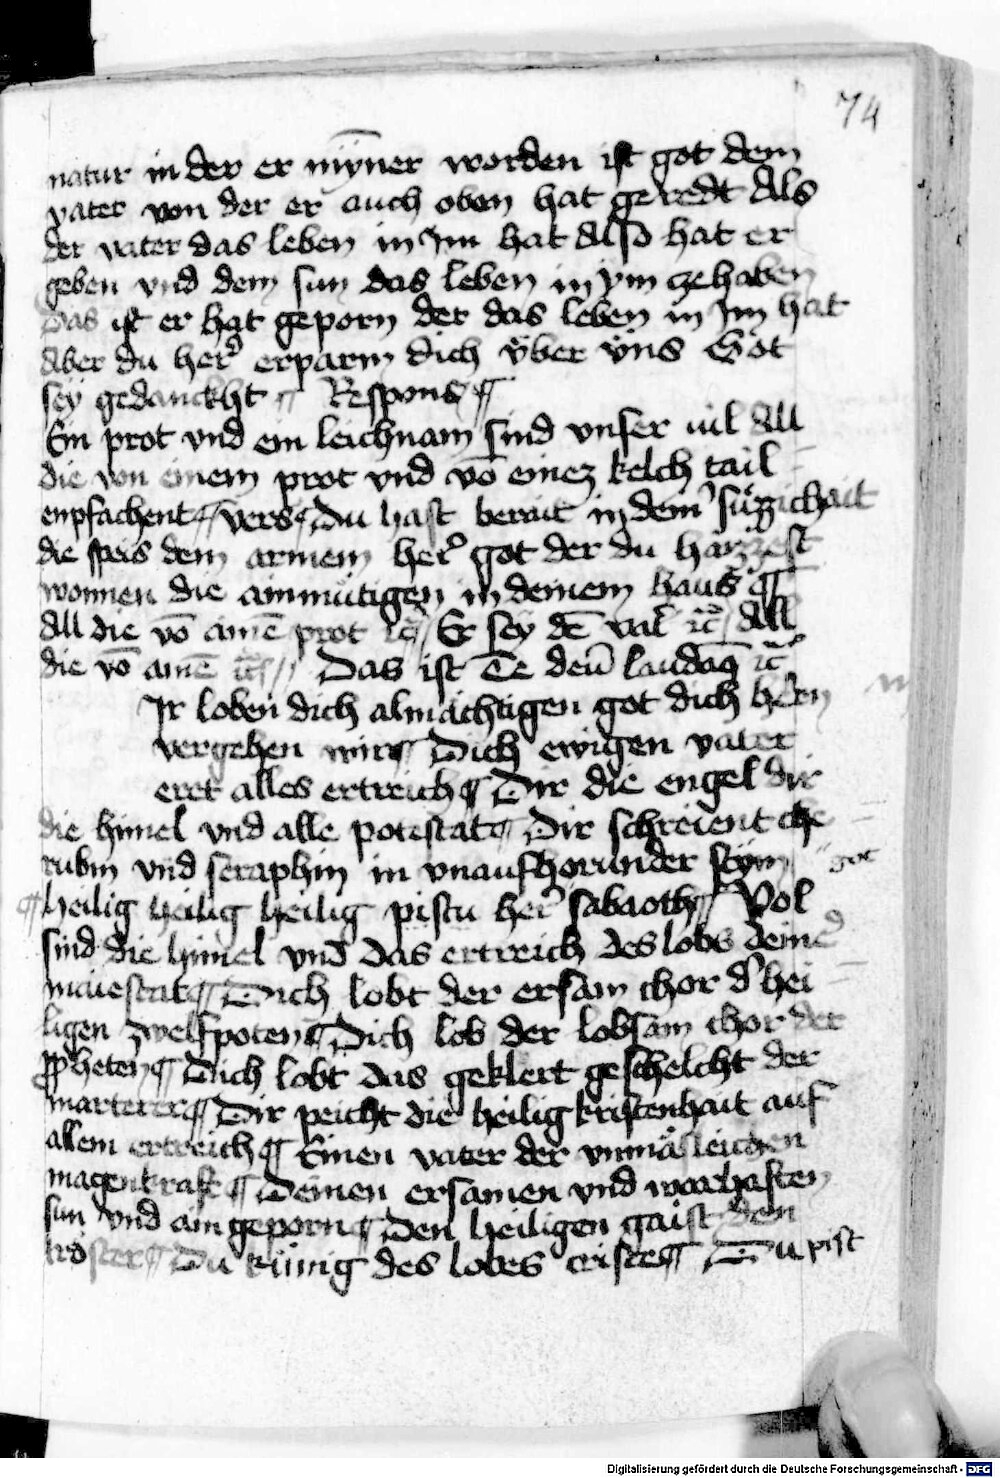 74
natur in der er mȳner worden ist got dem
vater von der er auch oben hat geredt Als
der vater das leben in Im hat Also hat er
geben vnd dem sun das leben in ym cze haben
Das ist er hat geporn der das leben in Im hat
Aber du her͛ erparm dich v̈ber v̈ns Got
sey gedanckht ¶ Respons ¶
Ein prot vnd ein leichnam sind vnser uil All
die von einem prot vnd vō einez kelch tail
enpfachent ¶ vers ¶ Du hast berait in dein͛ süzzichait
die speis dem armen her͛ got der du
wonnen die ainmütigen in deinem haus ¶
All die vō amē prot ꝛc̄ Er sey dē vat͛ ꝛc̄ All
die vō amē ꝛc̄ Das ist Te deū laudaꝫ ꝛc̄
Ir loben dich almächtigen got dich hern
vergehen wir ¶ Dich ewigen vater
eret alles ertreich ¶ Dir die engel dir
die himel vnd alle potestat ¶ Dir schreient che
rubin vnd seraphin in vnaufhorunder stym
got
¶ heilig heilig heilig pistu her͛ sabaoth ¶ Vol
sind die himel vnd das ertreich des lobs deine͛
maiestat ¶ Dich lobt der ersam chor d͛ hei
ligen zwelfpoten ¶ Dich lob der lobsam chor der
ꝓpheten ¶ Dich lobt das geklert geschelcht der
marterer ¶ Dir peicht die heilig kristenhait auf
allem ertreich ¶ Einen vater der vnmäsleichen
magenkraft ¶ Deinen ersamen vnd warhaften
sun vnd ain geporn ¶ Den heiligen gaist den
tröster ¶ Du künig des lobes criste ¶ Du pist
Digitalisierung gefördert durch die Deutsche Forschungsgemeinschaft - DFG